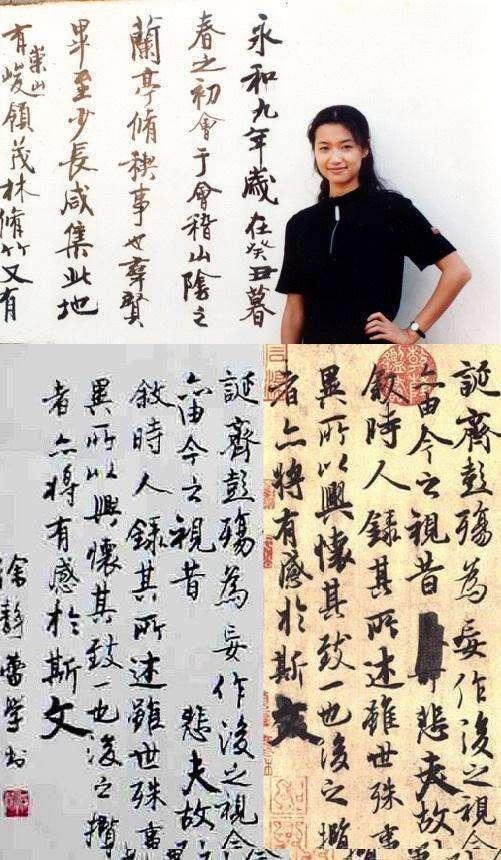 永和九年歲在癸丑暮
春之初會于會稽山陰之
蘭亭脩稧事也羣賢
畢至少長咸集此地
有崇山峻領茂林脩竹又有
誕齊彭殤為妄作後之視今
亦由今之視昔 悲夫故
敘時人錄其所述雖世殊事
異所以興懷其致一也後之攬
者亦將有感於斯文
徐靜蕾學書
誕齊彭殤為妄作後之視今
亦由今之視昔 悲夫故
敘時人錄其所述雖世殊事
異所以興懷其致一也後之攬
者亦將有感於斯文